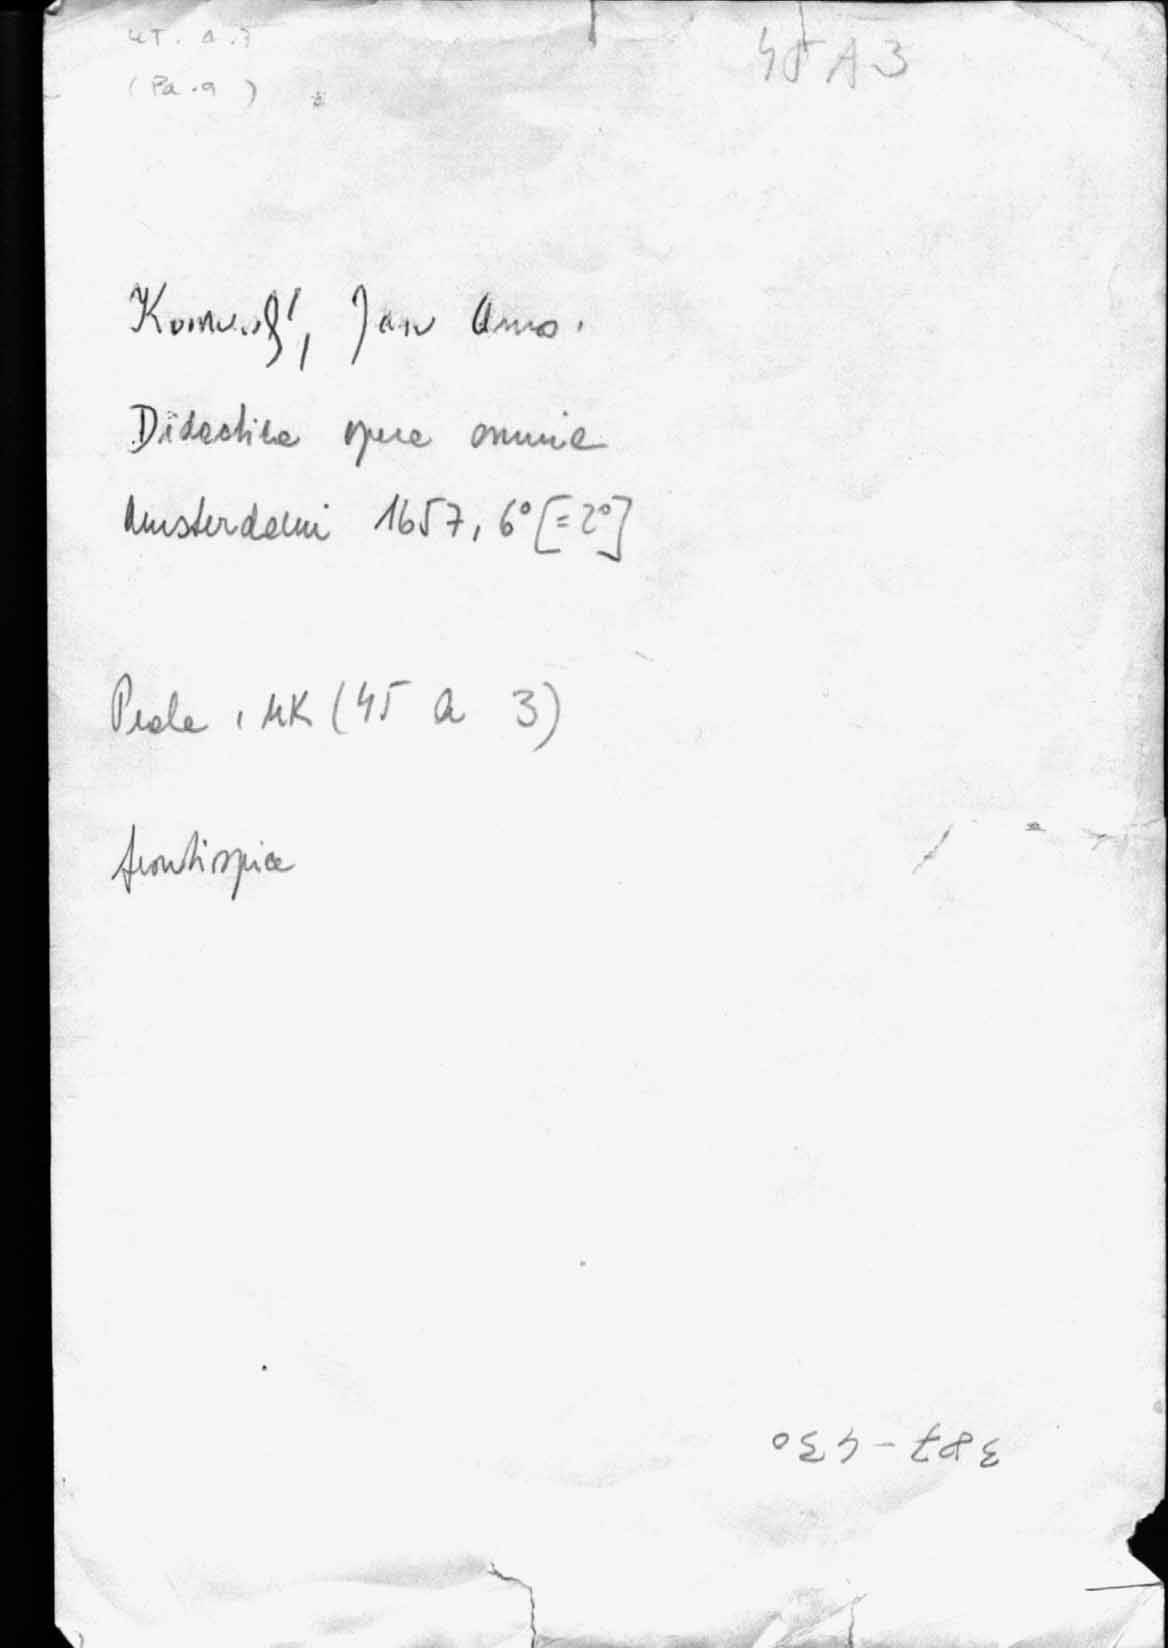 45 A 3
Komenský, Jan Amos.
Didactica opera omnia
Amsterdami 1657, 6° [=2°]
Praha, UK (45 A 3)
frontispice
387-430